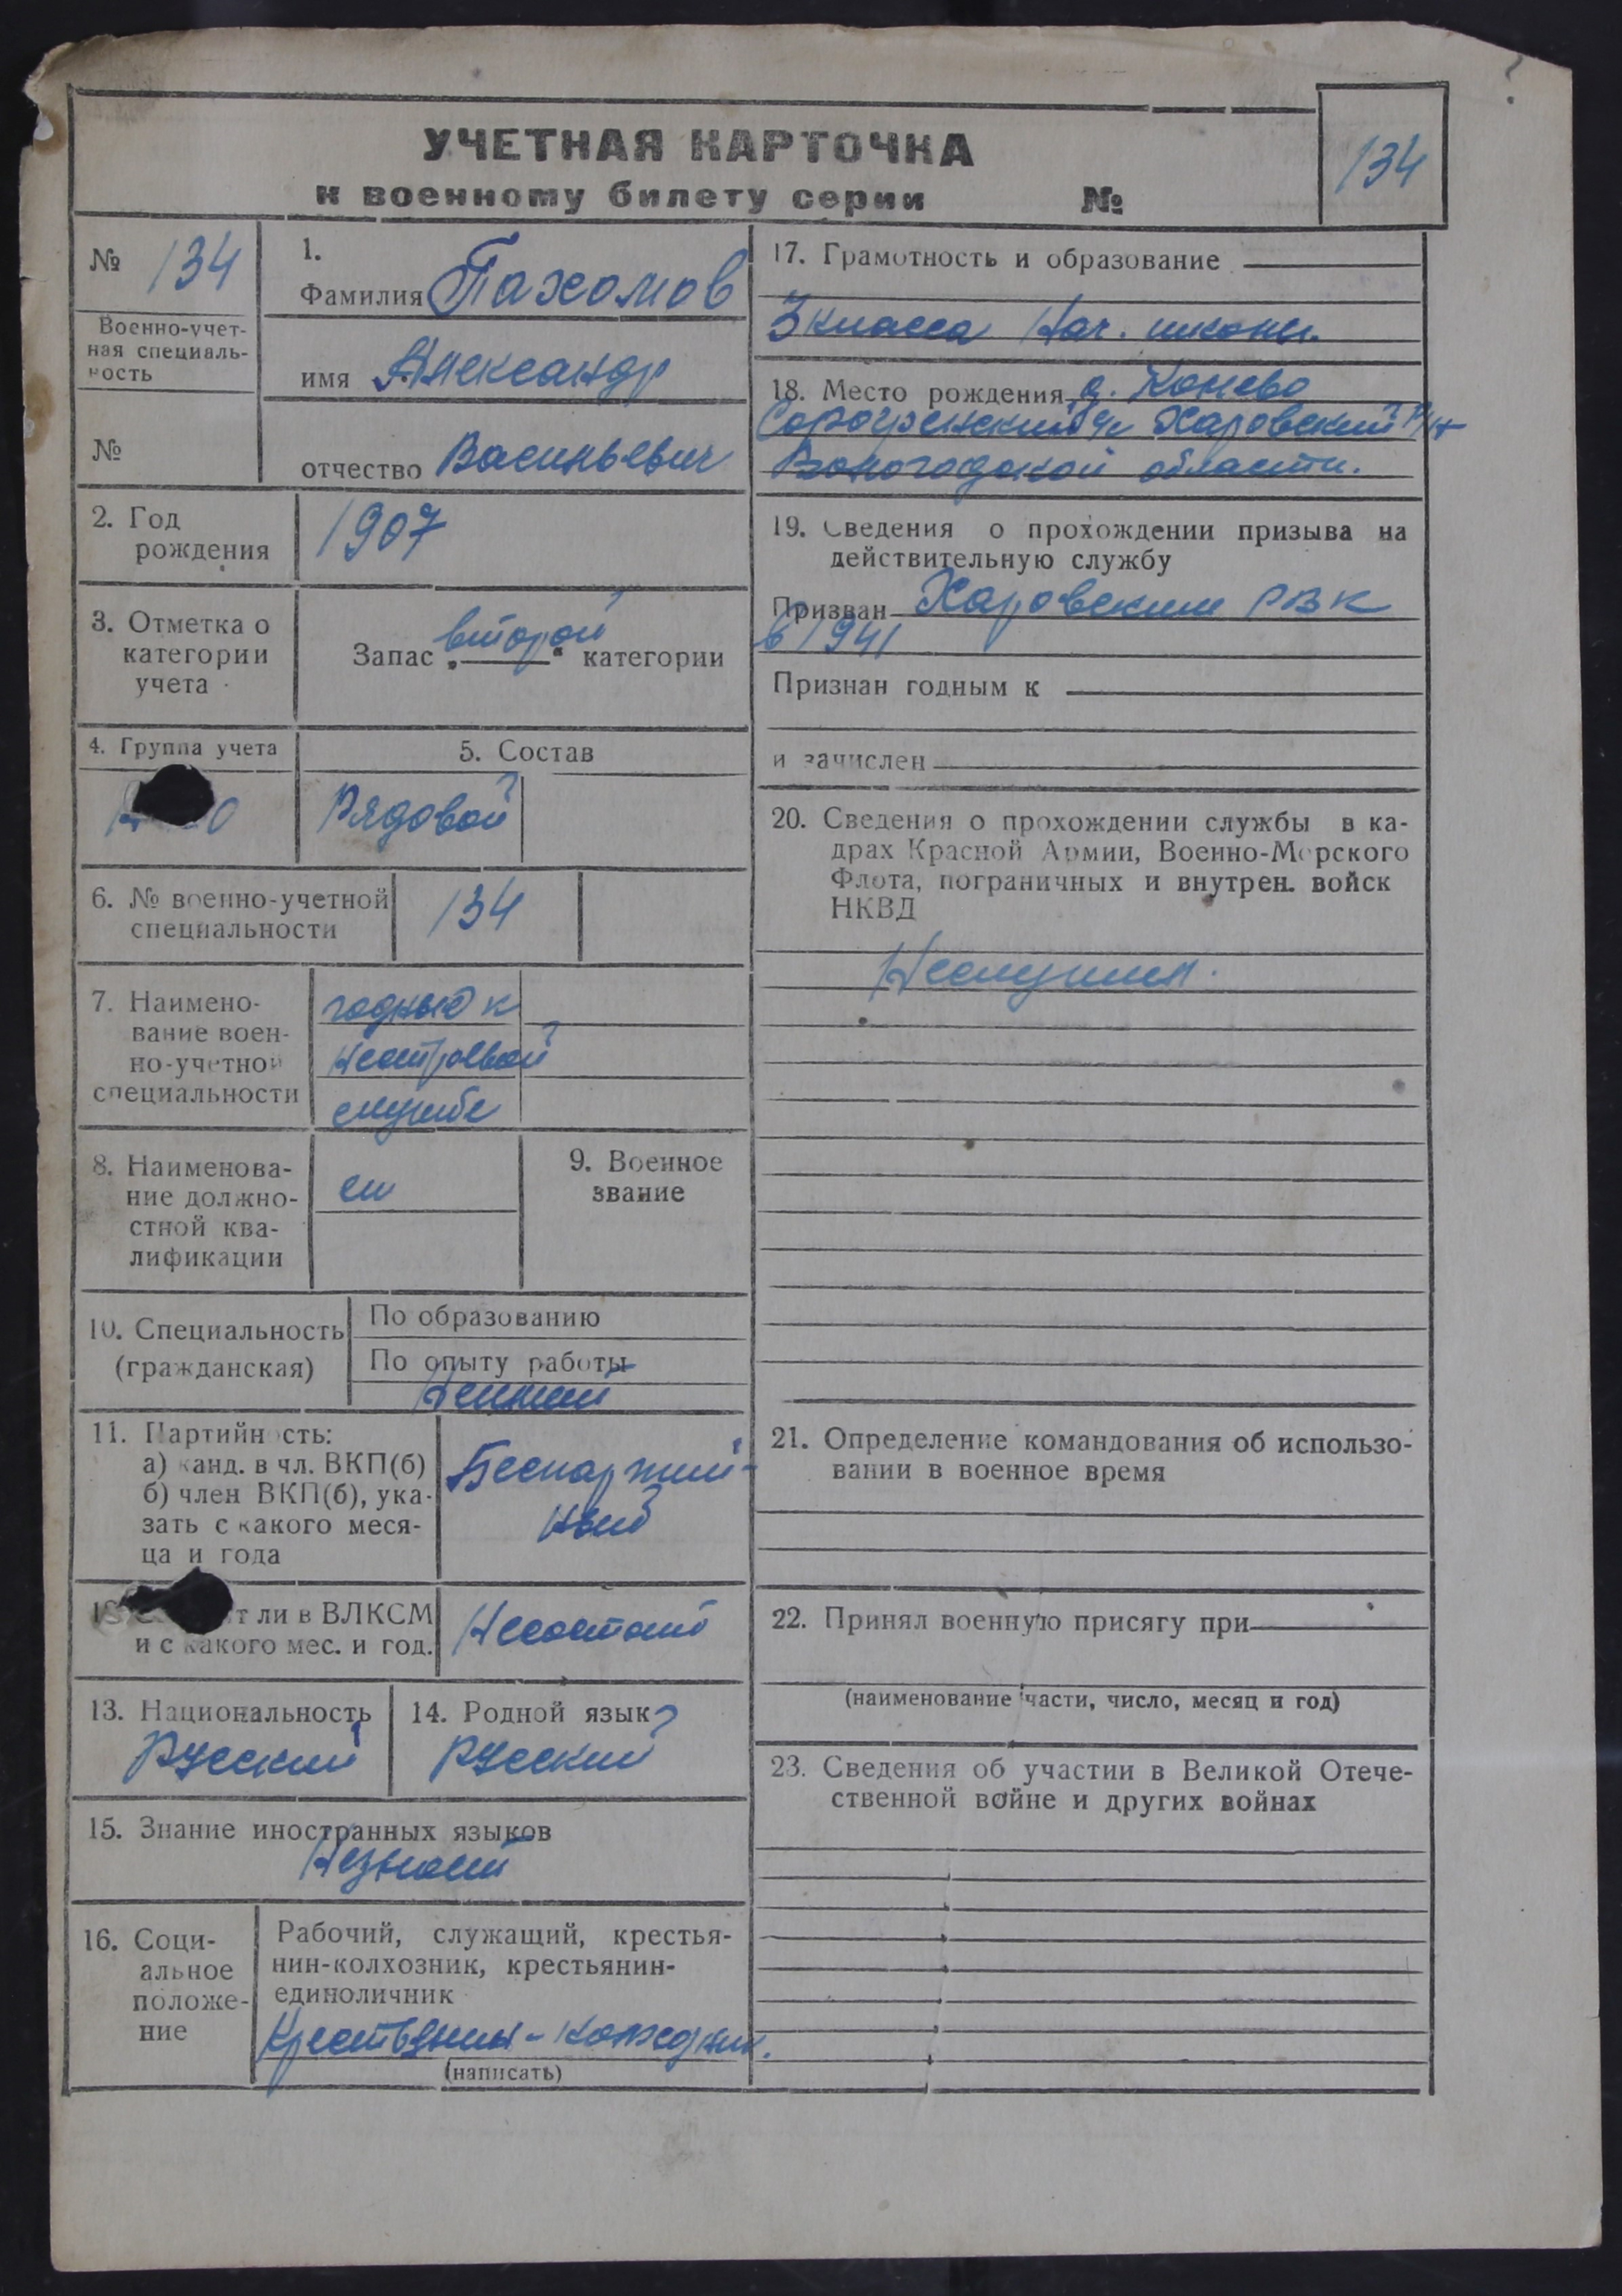 УЧЕТНАЯ КАРТОЧКА
к военному билету серии №
134
№ 134
Военно-учет-
ная специаль-
ность
№
1.
Фамилия Пахомов
имя Александр
отчество Васильевич
2. Год
рождения
1907
3. Отметка о
категории
учета
Запас „второй“ категории
4. Группа учета
5. Состав
Рядовой
6. № военно-учетной
специальности
134
7. Наимено-
вание воен-
но-учетной
специальности
годный к
нестроевой
службе
8. Наименова-
ние должно-
стной ква-
лификации
9. Военное
звание
10. Специальность
(гражданская)
По образованию
По опыту работы
11. Партийность:
а) канд. в чл. ВКП(б)
б) член ВКП(б), ука-
зать с какого меся-
ца и года
Беспартий-
ный
т ли в ВЛКСМ
и с какого мес. и год.
Несостоит
13. Национальность
Русский
14. Родной язык
Русский
15. Знание иностранных языков
Незнает
16. Соци-
альное
положе-
ние
Рабочий, служащий, крестья-
нин-колхозник, крестьянин-
единоличник
Крестьянин-колхозник.
(написать)
17. Грамотность и образование
3 класса Нач. школы.
18. Место рождения д. Конево
Харовский р/н
Вологодской области.
19. Сведения о прохождении призыва на
действительную службу
Призван Харовским РВК
в 1941
Признан годным к
и зачислен
20. Сведения о прохождении службы в ка-
драх Красной Армии, Военно-Морского
Флота, пограничных и внутрен. войск
НКВД
Неслужил.
21. Определение командования об использо-
вании в военное время
22. Принял военную присягу при
(наименование части, число, месяц и год)
23. Сведения об участии в Великой Отече-
ственной войне и других войнах